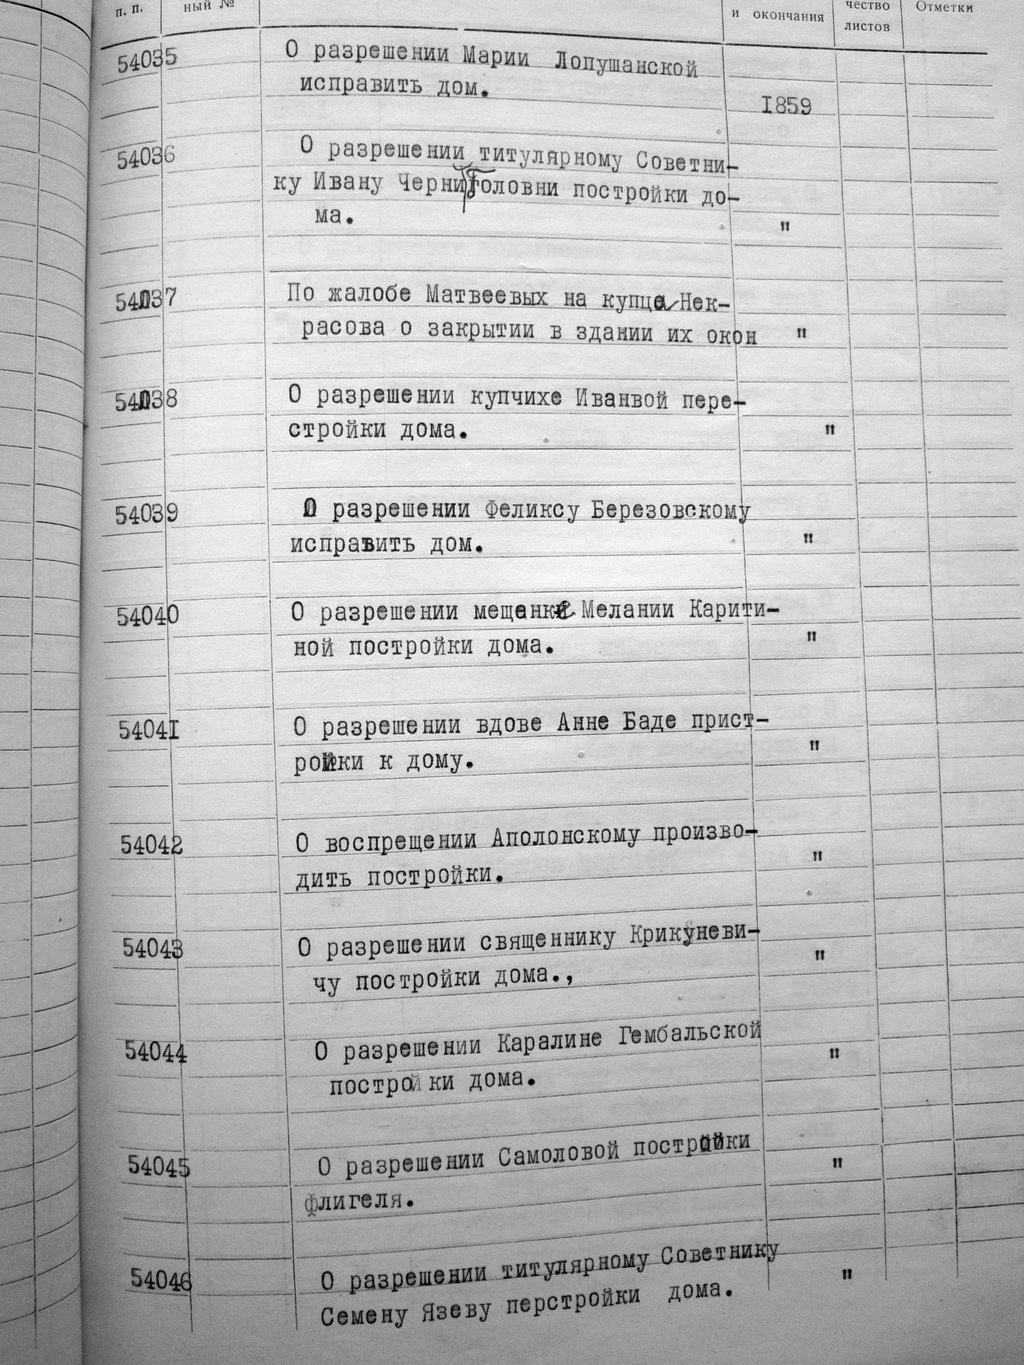 п. п.
ный №
и окончания
чество
листов
Отметки
54035
О разрешении Марии Лопушанской
исправить дом.
1859
54036
О разрешении титулярному Советни-
ку Ивану Черниголовни постройки до-
ма.
"
54037
По жалобе Матвеевых на купца Нек-
расова о закрытии в здании их окон
"
54038
О разрешении купчихе Иванвой пере-
стройки дома.
"
54039
О разрешении Феликсу Березовскому
исправить дом.
"
54040
О разрешении мещанке Мелании Карити-
ной постройки дома.
"
54041
О разрешении вдове Анне Баде прист-
ройки к дому.
"
54042
О воспрещении Аполонскому произво-
дить постройки.
"
54043
О разрешении священнику Крикуневи-
чу постройки дома.,
"
54044
О разрешении Каралине Гембальской
постройки дома.
"
54045
О разрешении Самоловой постройки
флигеля.
"
54046
О разрешении титулярному Советнику
Семену Язеву перстройки дома.
"